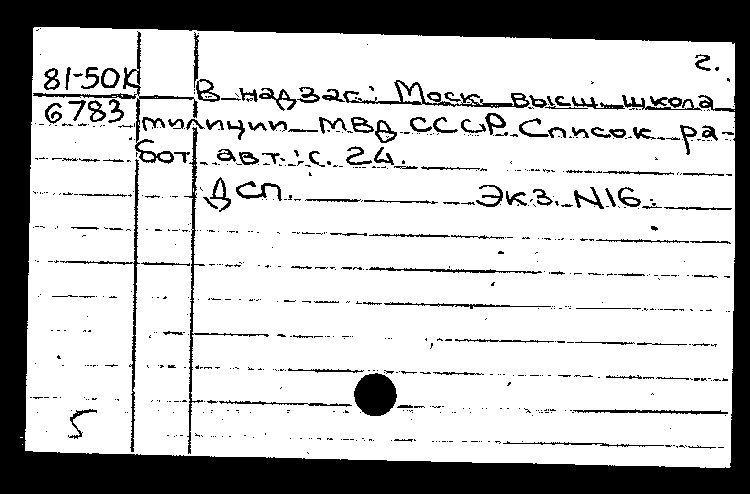 2.
81-50К
В надзаг.: Моск. высш. школа
6783
милиции МВД СССР. Список ра-
бот авт.: с. 24.
ДСП. Экз. N16.
5